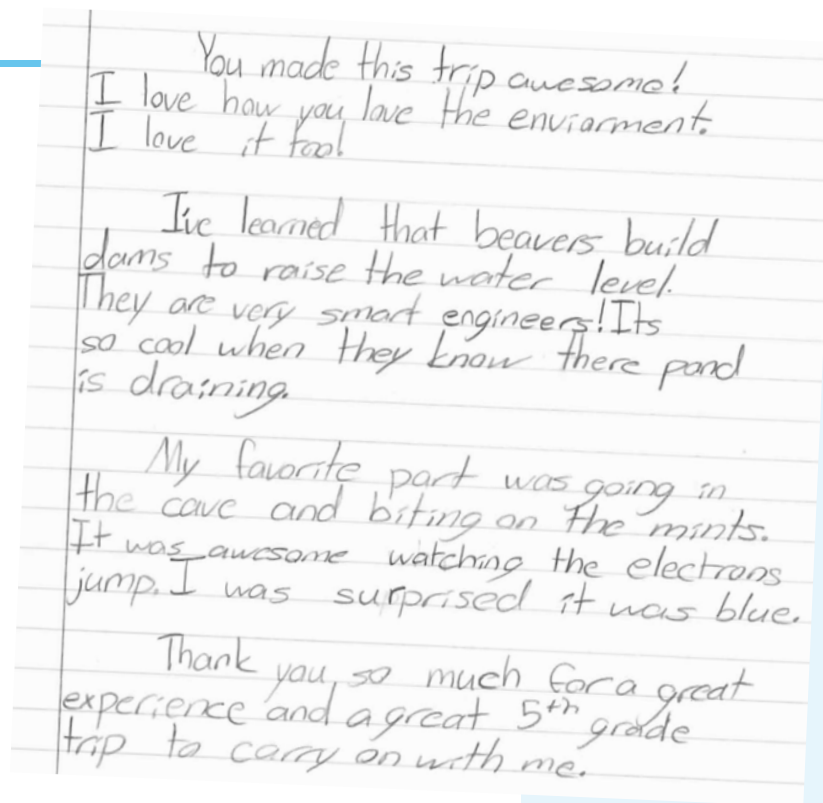 You made this trip awesome!
I love how you love the enviarment.
I love it too!
I've learned that beavers build
dams to raise the water level.
They are very smart engineers! Its
so cool when they know there pond
is draining.
My favorite part was going in
the cave and biting on the mints.
It was awesome watching the electrons
jump. I was surprised it was blue.
Thank you so much for a great
experience and a great 5th grade
trip to carry on with me.